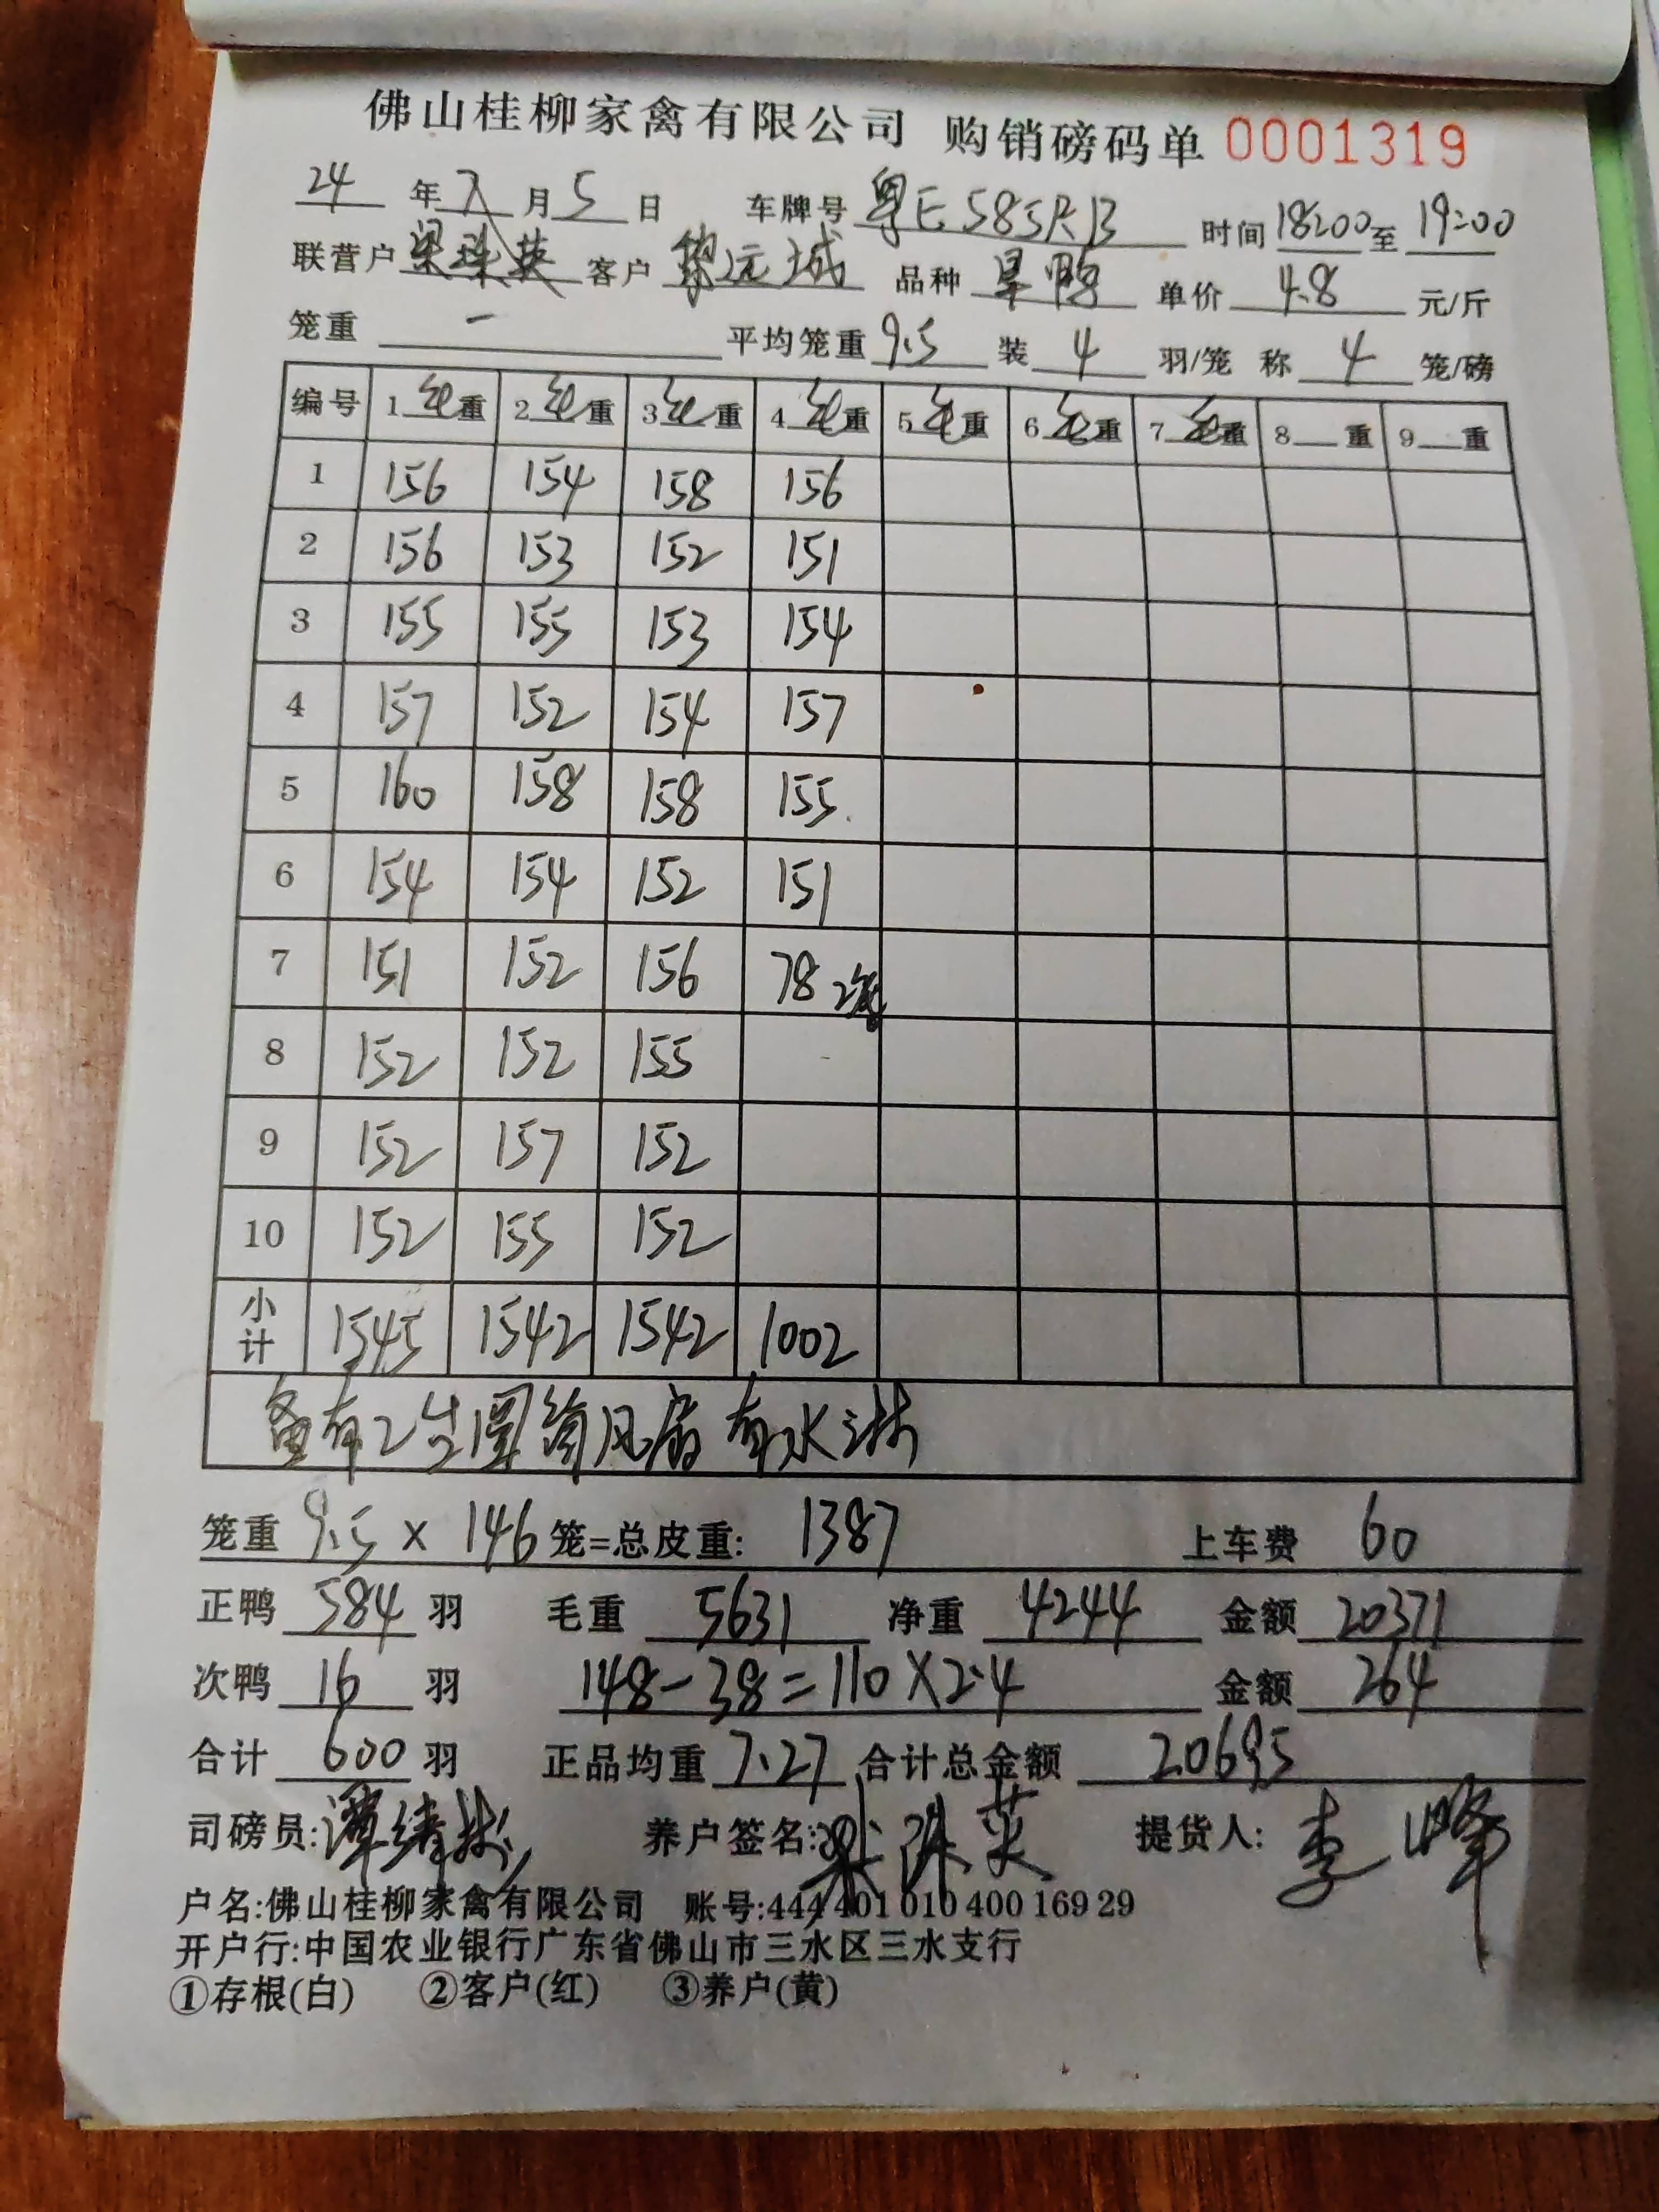 佛山桂柳家禽有限公司 购销磅码单 0001319
24 年 7 月 5 日 车牌号 粤E 585RB 时间 18:00 至 19:00
联营户 梁珠英 客户 黎远城 品种 旱鸭 单价 4.8 元/斤
笼重 一 平均笼重 9.5 装 4 羽/笼 称 4 笼/磅
编号 1 毛 重 2 毛 重 3 毛 重 4 毛 重 5 毛 重 6 毛 重 7 毛 重 8 重 9 重
1 156 154 158 156
2 156 153 152 151
3 155 155 153 154
4 157 152 154 157
5 160 158 158 155
6 154 154 152 151
7 151 152 156 78 2笼
8 152 152 155
9 152 157 152
10 152 155 152
小计 1545 1542 1542 1002
备有2台圆筒风扇 有水淋
笼重 9.5 × 146 笼=总皮重: 1387 上车费 60
正鸭 584 羽 毛重 5631 净重 4244 金额 20371
次鸭 16 羽 148-38=110×2.4 金额 264
合计 600 羽 正品均重 7.27 合计总金额 20695
司磅员: 谭 养户签名: 梁珠英 提货人: 李峰
户名:佛山桂柳家禽有限公司 账号:444 401 010 400 169 29
开户行:中国农业银行广东省佛山市三水区三水支行
①存根(白) ②客户(红) ③养户(黄)